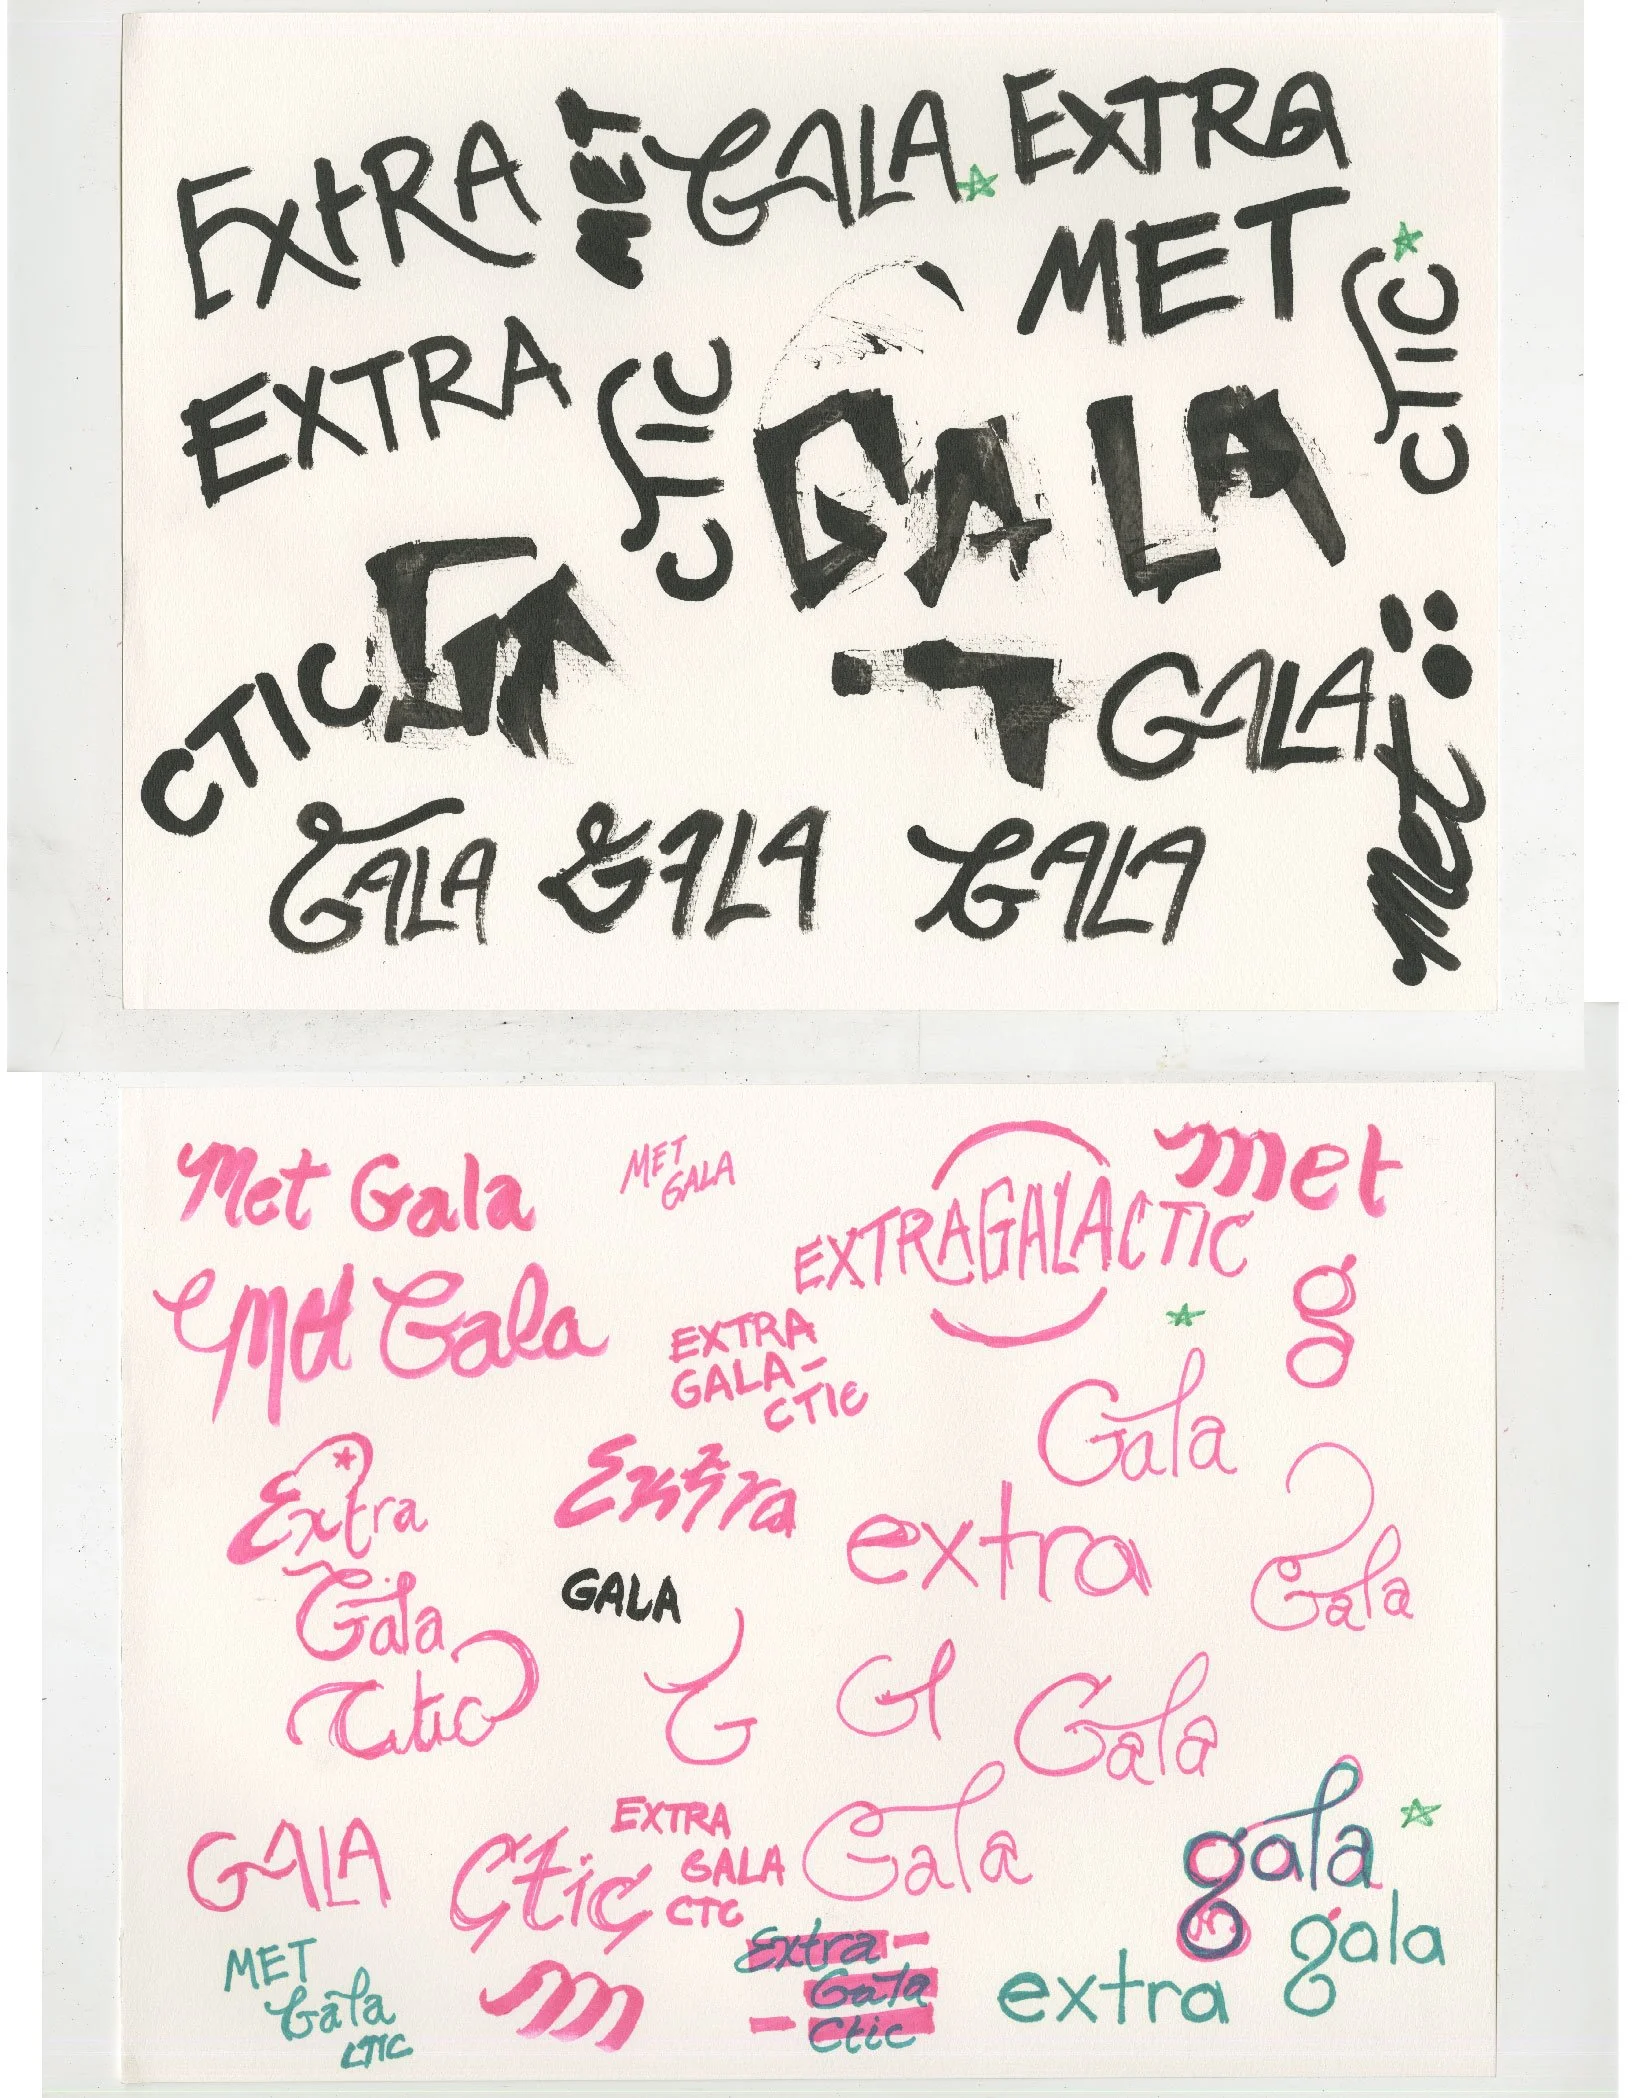 EXTRA
MET
GALA
EXTRA
MET
CTIC
EXTRA
CTIC
GALA
CTIC
GA
GALA
Met
GALA
GALA
GALA
Met Gala
MET
GALA
EXTRAGALACTIC
met
g
Met Gala
EXTRA
GALA-
CTIC
Gala
Extra
Gala
Ctic
Extra
extra
Gala
GALA
G
G
Gala
GALA
Ctic
EXTRA
GALA
CTC
Gala
gala
gala
MET
Gala
CTIC
m
Extra-
Gala
-Ctic
extra